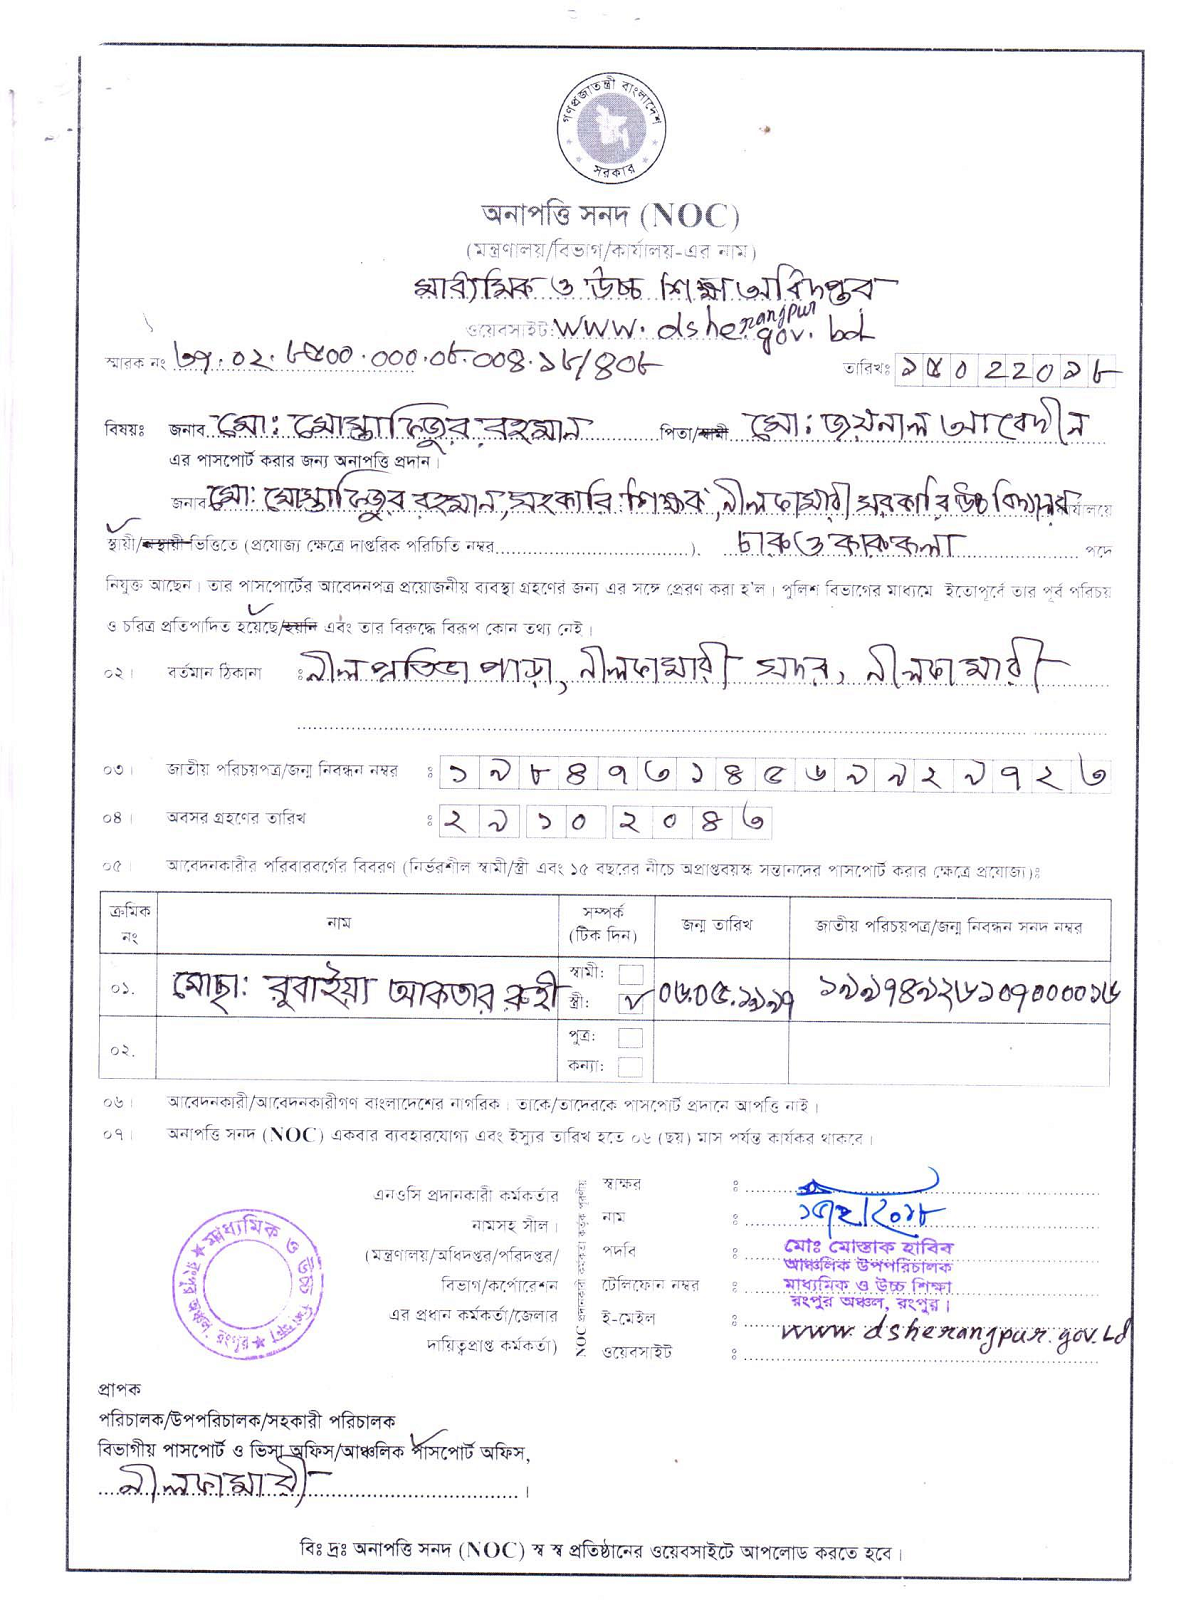 গণপ্রজাতন্ত্রী বাংলাদেশ
সরকার
অনাপত্তি সনদ (NOC)
(মন্ত্রণালয়/বিভাগ/কার্যালয়-এর নাম)
মাধ্যমিক ও উচ্চ শিক্ষা অধিদপ্তর
ওয়েবসাইট: www.dsherangpur.gov.bd
স্মারক নং ৩৭.০২.৮৫০০.০০০.০৮.০০৪.১৮/৪০৮ তারিখঃ ১৫০২২০১৮
বিষয়ঃ জনাব মো: মোস্তাফিজুর রহমান পিতা/স্বামী মো: জয়নাল আবেদীন
এর পাসপোর্ট করার জন্য অনাপত্তি প্রদান।
জনাব মো: মোস্তাফিজুর রহমান, সহকারি শিক্ষক, নীলফামারী সরকারি উচ্চ বিদ্যালয় কার্যালয়ে
স্থায়ী/অস্থায়ী ভিত্তিতে (প্রযোজ্য ক্ষেত্রে দাপ্তরিক পরিচিতি নম্বর....................). চারু ও কারুকলা পদে
নিযুক্ত আছেন। তার পাসপোর্টের আবেদনপত্র প্রয়োজনীয় ব্যবস্থা গ্রহণের জন্য এর সঙ্গে প্রেরণ করা হ'ল। পুলিশ বিভাগের মাধ্যমে ইতোপূর্বে তার পূর্ব পরিচয়
ও চরিত্র প্রতিপাদিত হয়েছে/হয়নি এবং তার বিরুদ্ধে বিরূপ কোন তথ্য নেই।
০২। বর্তমান ঠিকানা : নীল প্রতিভা পাড়া, নীলফামারী সদর, নীলফামারী
০৩। জাতীয় পরিচয়পত্র/জন্ম নিবন্ধন নম্বর : ১৯৮৪৭৩১৪৫৬৯৯২৯৭২৩
০৪। অবসর গ্রহণের তারিখ : ২৯১০২০৪৩
০৫। আবেদনকারীর পরিবারবর্গের বিবরণ (নির্ভরশীল স্বামী/স্ত্রী এবং ১৫ বছরের নীচে অপ্রাপ্তবয়স্ক সন্তানদের পাসপোর্ট করার ক্ষেত্রে প্রযোজ্য)ঃ
ক্রমিক নং নাম সম্পর্ক (টিক দিন) জন্ম তারিখ জাতীয় পরিচয়পত্র/জন্ম নিবন্ধন সনদ নম্বর
০১. মোছা: রুবাইয়া আকতার রুহী স্বামী: স্ত্রী: ✓ ০৬.০৫.১৯৯৭ ১৯৯৭৪৯২৬১০৭০০০০১৬
০২. পুত্র: কন্যা:
০৬। আবেদনকারী/আবেদনকারীগণ বাংলাদেশের নাগরিক। তাকে/তাদেরকে পাসপোর্ট প্রদানে আপত্তি নাই।
০৭। অনাপত্তি সনদ (NOC) একবার ব্যবহারযোগ্য এবং ইস্যুর তারিখ হতে ০৬ (ছয়) মাস পর্যন্ত কার্যকর থাকবে।
এনওসি প্রদানকারী কর্মকর্তার
নামসহ সীল।
(মন্ত্রণালয়/অধিদপ্তর/পরিদপ্তর/
বিভাগ/কর্পোরেশন
এর প্রধান কর্মকর্তা/জেলার
দায়িত্বপ্রাপ্ত কর্মকর্তা)
NOC প্রদানকারী কর্মকর্তা কর্তৃক পূরণীয়
স্বাক্ষর :
নাম : ১৫/২/২০১৮
পদবি : মোঃ মোস্তাক হাবিব
আঞ্চলিক উপপরিচালক
টেলিফোন নম্বর : মাধ্যমিক ও উচ্চ শিক্ষা
রংপুর অঞ্চল, রংপুর।
ই-মেইল : www.dsherangpur.gov.bd
ওয়েবসাইট :
মাধ্যমিক ও উচ্চ শিক্ষা
রংপুর অঞ্চল, রংপুর
প্রাপক
পরিচালক/উপপরিচালক/সহকারী পরিচালক
বিভাগীয় পাসপোর্ট ও ভিসা অফিস/আঞ্চলিক পাসপোর্ট অফিস,
নীলফামারী।
বিঃ দ্রঃ অনাপত্তি সনদ (NOC) স্ব স্ব প্রতিষ্ঠানের ওয়েবসাইটে আপলোড করতে হবে।